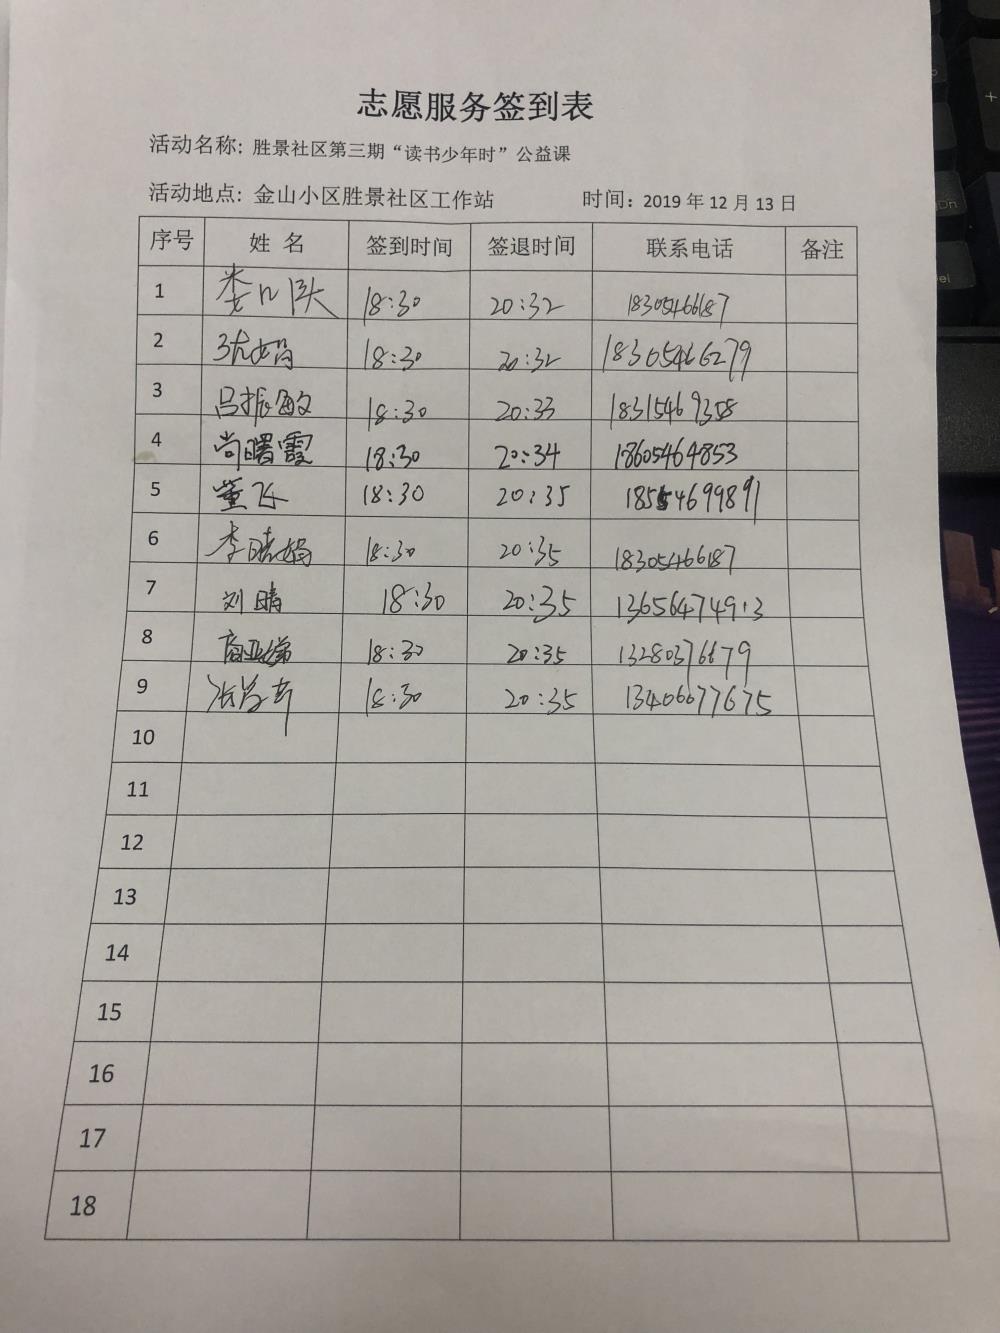 志愿服务签到表
活动名称: 胜景社区第三期“读书少年时”公益课
活动地点: 金山小区胜景社区工作站 时间: 2019 年 12 月 13 日
序号 姓 名 签到时间 签退时间 联系电话 备注
1 18:30 20:32 18305466187
2 18:30 20:32 18305466279
3 吕振敏 18:30 20:33 18315469358
4 尚曙霞 18:30 20:34 18605464853
5 董飞 18:30 20:35 18554699891
6 李晓娟 18:30 20:35 18305466187
7 刘晴 18:30 20:35 13656474913
8 18:30 20:35 13280376679
9 18:30 20:35 13406677675
10
11
12
13
14
15
16
17
18